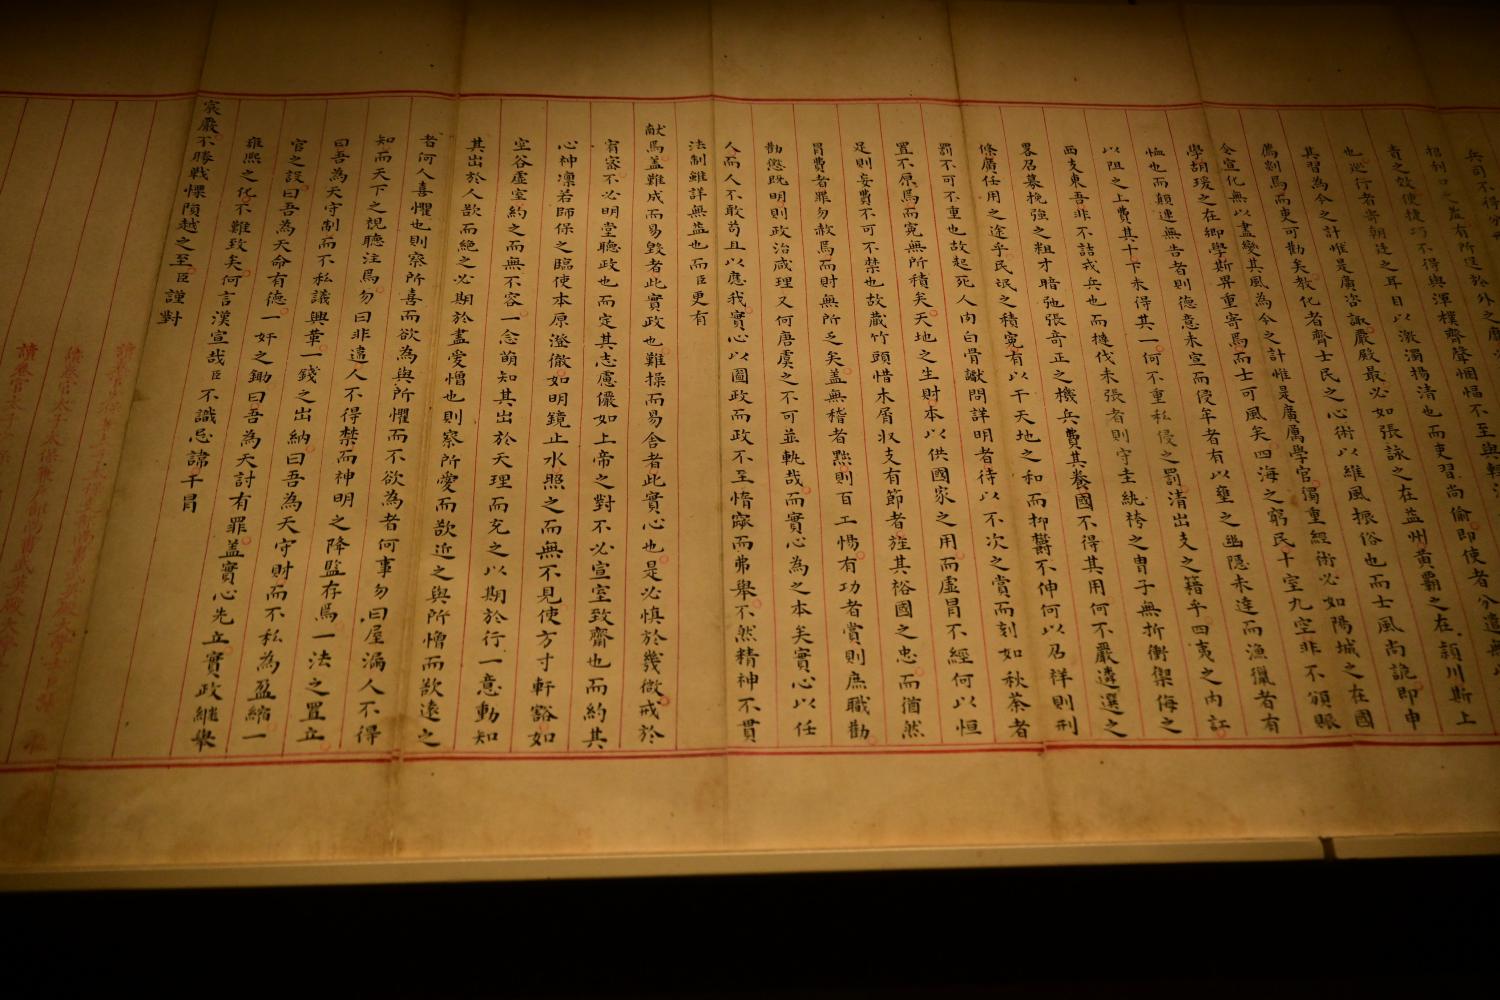 招利口之蓋有所逞於外之
者之效使捷巧不得與渾樸齊聲悃愊不至與
也巡行者寄朝廷之耳目以激濁揚清也而吏習尚偷即使者分遣無
其習為今之計惟是廣咨諏嚴殿最必如張詠之在益州黃霸之在潁川斯上
薦剡焉而吏可勸矣教化者齊士民之心術以維風振俗也而士風尚詭即申
令宣化無以盡變其風為今之計惟是廣厲學官獨重經術必如陽城之在國
學胡瑗之在鄉學斯畀重寄焉而士可風矣四海之窮民十室九空非不頒賑
恤也而顛連無告者則德意未宣而侵牟者有以壅之幽隱未達而漁獵者有
以阻之上費其十下未得其一何不重私侵之罰清出支之籍乎四夷之內訌
西支東吾非不詰戎兵也而撻伐未張者則守圭紈袴之冑子無折衝禦侮之
畧召募挽強之粗才暗弛張奇正之機兵費其養國不得其用何不嚴遴選之
條廣任用之途乎民氓之積冤有以干天地之和而抑鬱不伸何以召祥則刑
罰不可不重也故起死人肉白骨讞問詳明者待以不次之賞而刻如秋荼者
置不原焉而冤無所積矣天地之生財本以供國家之用而虛冒不經何以恒
足則妄費不可不禁也故藏竹頭惜木屑收支有節者旌其裕國之忠而猶然
冒費者罪勿赦焉而財無所乏矣蓋無稽者黜則百工惕有功者賞則庶職勸
勸懲既明則政治咸理又何唐虞之不可並軌哉而實心為之本矣實心以任
人而人不敢苟且以應我實心以圖政而政不至惰窳而弗舉不然精神不貫
法制雖詳無益也而臣更有
献焉蓋難成而易毀者此實政也難操而易舍者此實心也是必慎於幾微戒於
宥密不必明堂聽政也而定其志慮儼如上帝之對不必宣室致齋也而約其
心神凜若師保之臨使本原澄徹如明鏡止水照之而無不見使方寸軒豁如
空谷虛室約之而無不容一念萌知其出於天理而充之以期於行一意動知
其出於人欲而絕之必期於盡愛憎也則察所愛而欲近之與所憎而欲遠之
者何人喜懼也則察所喜而欲為與所懼而不欲為者何事勿曰屋漏人不得
知而天下之視聽注焉勿曰非違人不得禁而神明之降監存焉一法之置立
曰吾為天守制而不私議興革一錢之出納曰吾為天守財而不私為盈縮一
官之設曰吾為天命有德一奸之鋤曰吾為天討有罪蓋實心先立實政繼舉
雍熙之化不難致矣何言漢宣哉臣不識忌諱干冒
宸嚴不勝戰慄隕越之至臣謹對